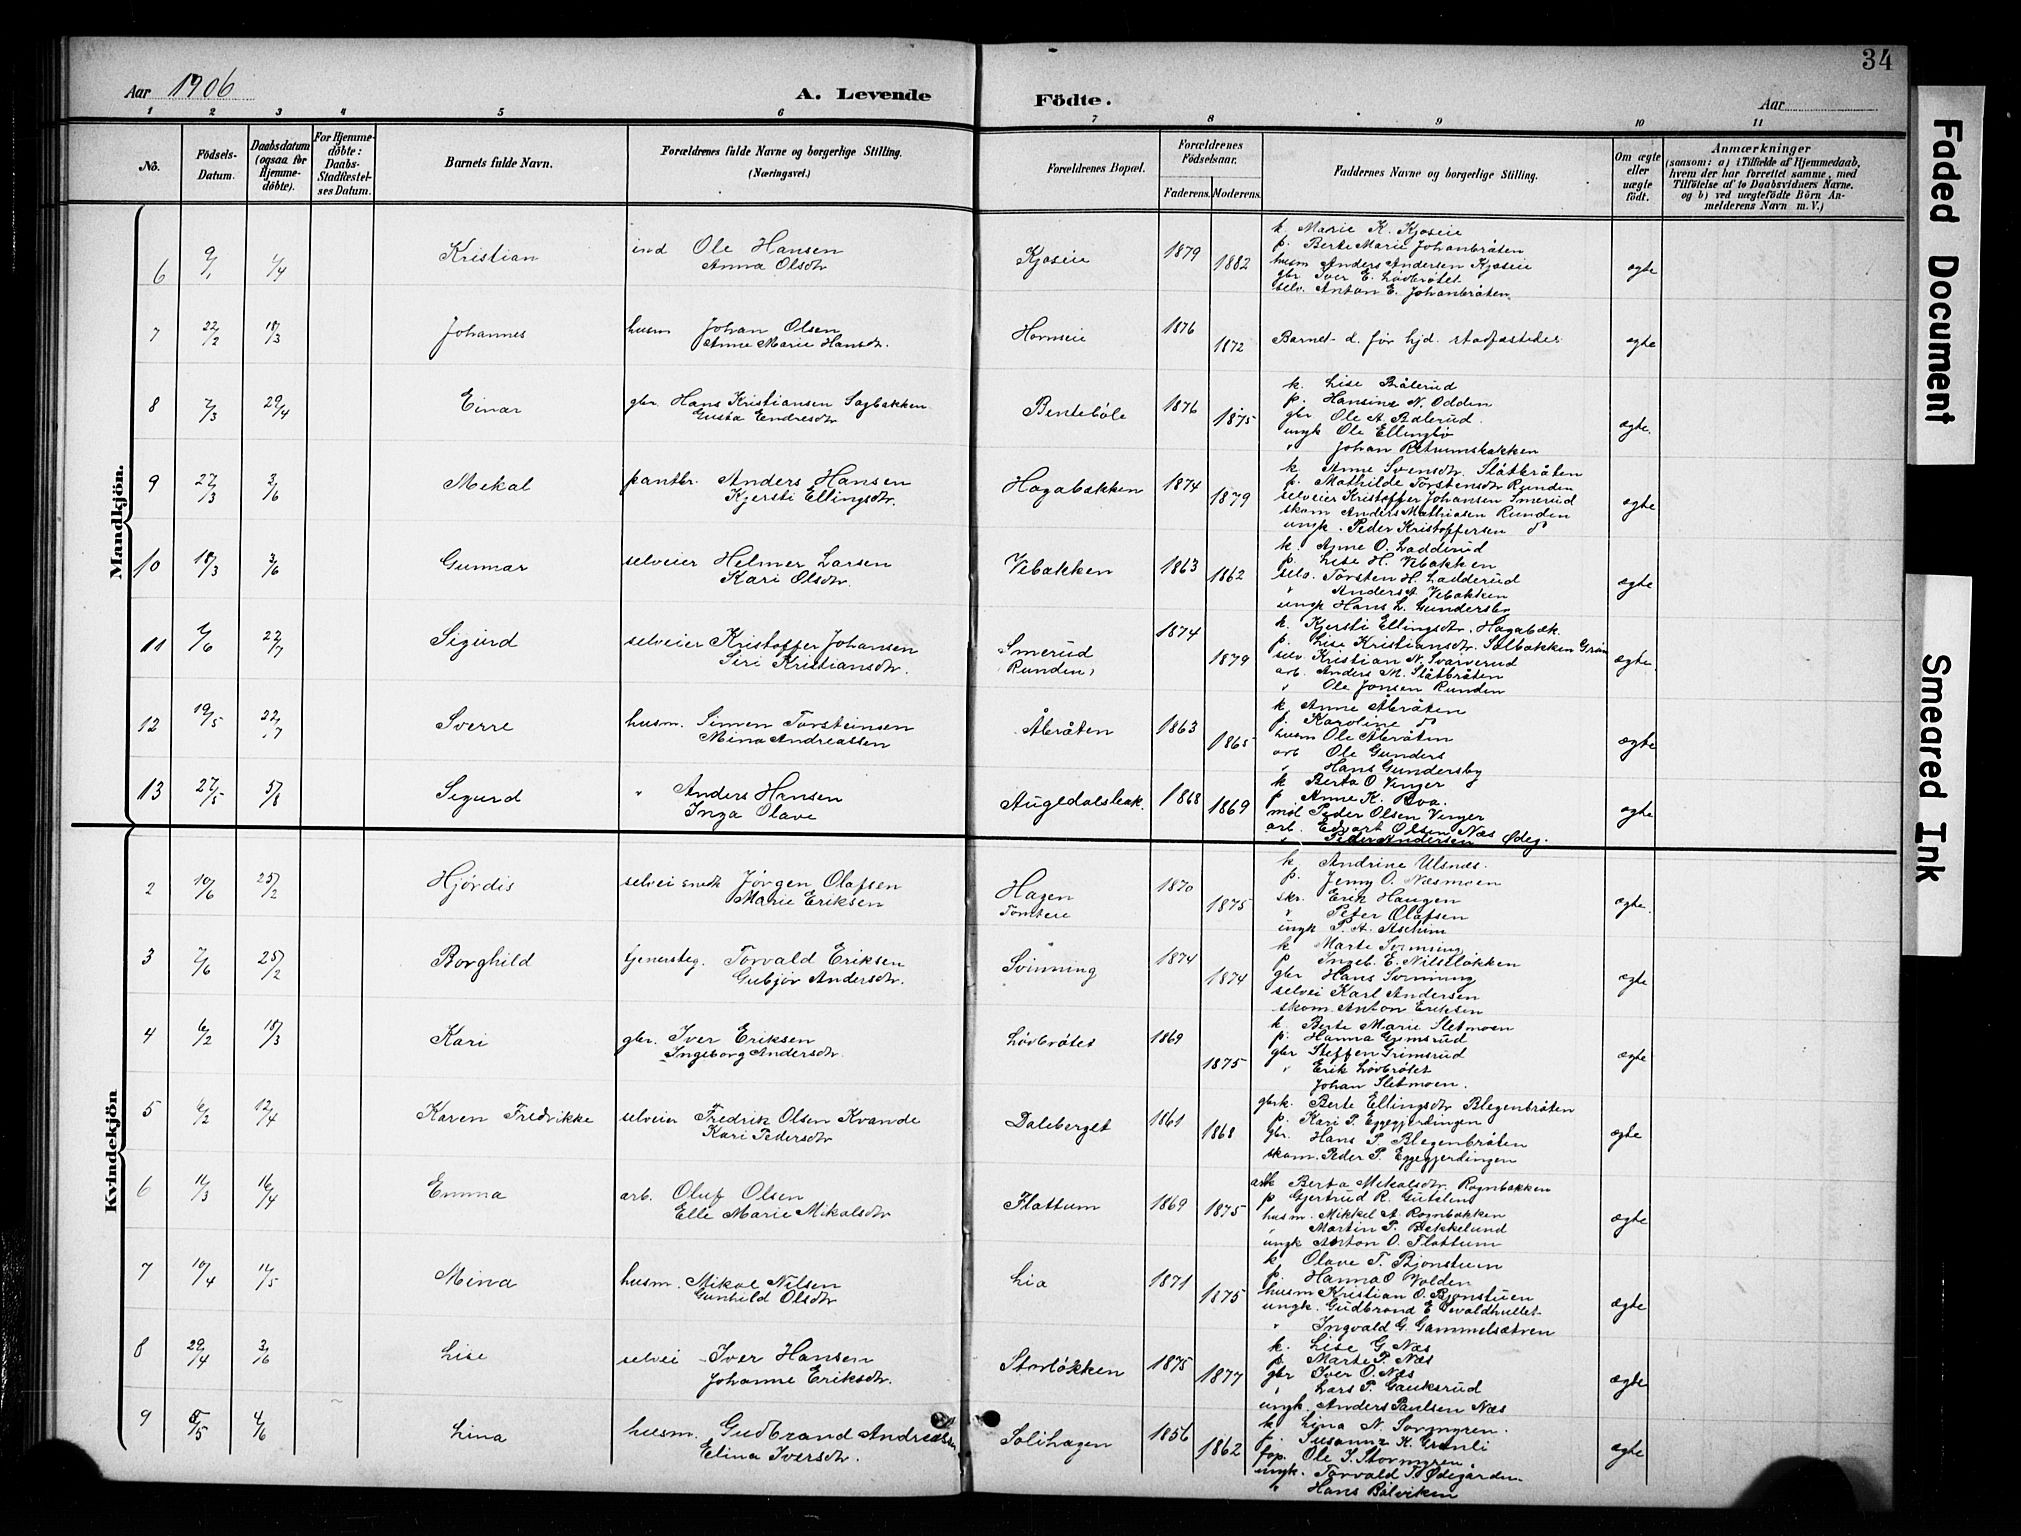 34
Aar 1906
A. Levende
Födte.
Aar
1 2 3 4 5 6 7 8 9 10 11
No.
Födsels-Datum.
Daabsdatum (ogsaa for Hjemmedöbte).
For Hjemmedöbte: Daabs-Stadfestelses Datum.
Barnets fulde Navn.
Forældrenes fulde Navne og borgerlige Stilling. (Næringsvei.)
Forældrenes Bopæl.
Forældrenes Födselsaar.
Faderens. Moderens.
Faddernes Navne og borgerlige Stilling.
Om ægte eller uægte födt.
Anmærkninger
(saasom: a) i Tilfælde af Hjemmedaab, hvem der har forrettet samme, med Tilföielse af to Daabsvidners Navne, og b) ved uægtefödte Börn Anmelderens Navn m. V.)
Mandkjön.
6 9/1 4/4 Kristian
ind Ole Hansen
Anna Olsdtr
Kjoseie 1879 1882
k. Marie K. Kjoseie
p. Berte Marie Johanbråten
husm Anders Andersen Kjoseie
gbr Iver E. Lövbrötet
selv. Anton E. Johanbråten.
ægte
7 22/2 18/3 Johannes
husm Johan Olsen
Anne Marie Hansdtr.
Hornseie 1876 1872
Barnet d. för hjd. stadfæstedes
ægte
8 7/3 29/4 Einar
gbr. Hans Kristiansen Sagbakken
Gusta Endresdtr
Benteböle 1876 1875
k. Lise Bålerud
p. Hansine N. Odden
gbr Ole A. Bålerud.
ungk Ole Ellingbö
" Johan Petrumsbakken
ægte.
9 27/3 3/6 Mekal
pantbr. Anders Hansen
Kjersti Ellingsdtr.
Hagabakken 1874 1879
k. Anne Svensdtr. Slåtbråten
p. Mathilde Torstensdtr Runden
selveier Kristoffer Johansen Smerud
skom Anders Mathiasen Runden
ungk. Peder Kristoffersen do
ægte
10 18/3 3/6 Gunnar
selveier Helmer Larsen
Kari Olsdtr.
Vebakken 1863 1862
k. Anne O. Ladderud
p. Lise H. Vebakken
selv. Torsten H. Ladderud
" Anders A Vebakken
ungk Hans L. Gundersby
ægte
11 22/7 Sigurd
selveier Kristoffer Johansen
Siri Kristiansdtr.
Smerud
(Runden) 1874 1879
k. Kjersti Ellingsdtr. Hagabæk.
p. Lise Kristiansdtr. Solbakken
selv. Kristian N. Svarverud
arb. Anders M. Slåtbråten
" Ole Jonsen Runden
ægte.
12 19/5 22/7 Sverre
husm. Simen Torsteinsen
Mina Andreassen
Åbråten 1863 1865
k. Anne Åbråten
p. Karoline do
husm Ole Åbråten
arb Ole Gunders
" Hans Gundersby
ægte
13 27/5 5/8 Sigurd
" Anders Hansen
Inga Olave
Augedalsbak. 1868 1869
k Berta O. Vinger
p. Anne K.
møl Peder Olsen Vinger
arb. Edvart Olsen Næs Ødeg.
" Peder Andersen
ægte
Kvindekjön
2 10/6 25/2 Hjördis
selvei snedk Jörgen Olafsen
Marie Eriksen
Hagen
Tomteie 1870 1875
k. Andrine Ulsnæs.
p. Jenny O. Næsmoen
skr. Erik Haugen
" Peter Olafsen
ungk P. A. Aschim
ægte.
3 7/6 25/2 Borghild
Torvald Eriksen
Gubjör Andersdtr.
Svinning 1874 1874
k Marte Svinning
p Ingeb. E. Nilslökken
gbr Hans Svinning
selvei Karl Andersen
skom Anton Eriksen
ægte
4 6/2 18/3 Kari
gbr. Iver Eriksen
Ingeborg Andersdtr.
Lövbrötet 1869 1875
k. Berte Marie Sletmoen
p. Hanna Grimsrud
gbr Steffen Grimsrud
" Erik Lövbrötet
Johan Sletmoen.
ægte
5 6/2 12/4 Karen Fredrikke
selveier Fredrik Olsen Kvande
Kari Pedersdtr
Dalsberget 1861 1868
gbrk. Berte Ellingsdtr Blegenbråten
p. Kari P. Eggegjerdingen
gbr. Hans P. Blegenbråten
skom. Peder P. Eggegjerdingen
ægte
6 11/3 16/4 Emma
arb. Oluf Olsen
Elle Marie Mikalsdtr
Flattum 1869 1875
Berta Mekalsdtr. Rognbakken
p Gjertrud R. Gutelin
husm. Mikkel A Rognbakken
" Martin P. Bekkelund
ungk Anton O. Flattum
ægte
7 10/4 Mina
husm. Mikal Nilsen
Gunhild Olsdtr
Lia 1871 1875
k. Olave T. Bjonstuen
p. Hanna O Volden
husm Kristian O. Bjonstuen
ungk. Gudbrand E
" Ingvald G. Gammelsætren
ægte
8 29/4 3/6 Lise
selvei Iver Hansen
Johanne Eriksdtr.
Storlökken 1875 1877
k. Lise G. Næs
p. Marte P. Næs
gbr Iver O. Næs
" Lars P. Gauksrud
ungk. Anders Paulsen Næs
ægte
9 8/5 4/6 Lina
husm. Gudbrand Andreassen
Elina Iversdtr.
Solihagen 1856 1862
k Lina N Stormyren.
p. Susanne K. Grønli
Ole I. Stormyren.
ungk. Torvald T. Ødegården.
" Hans Bålviken
ægte
Faded Document
Smeared Ink